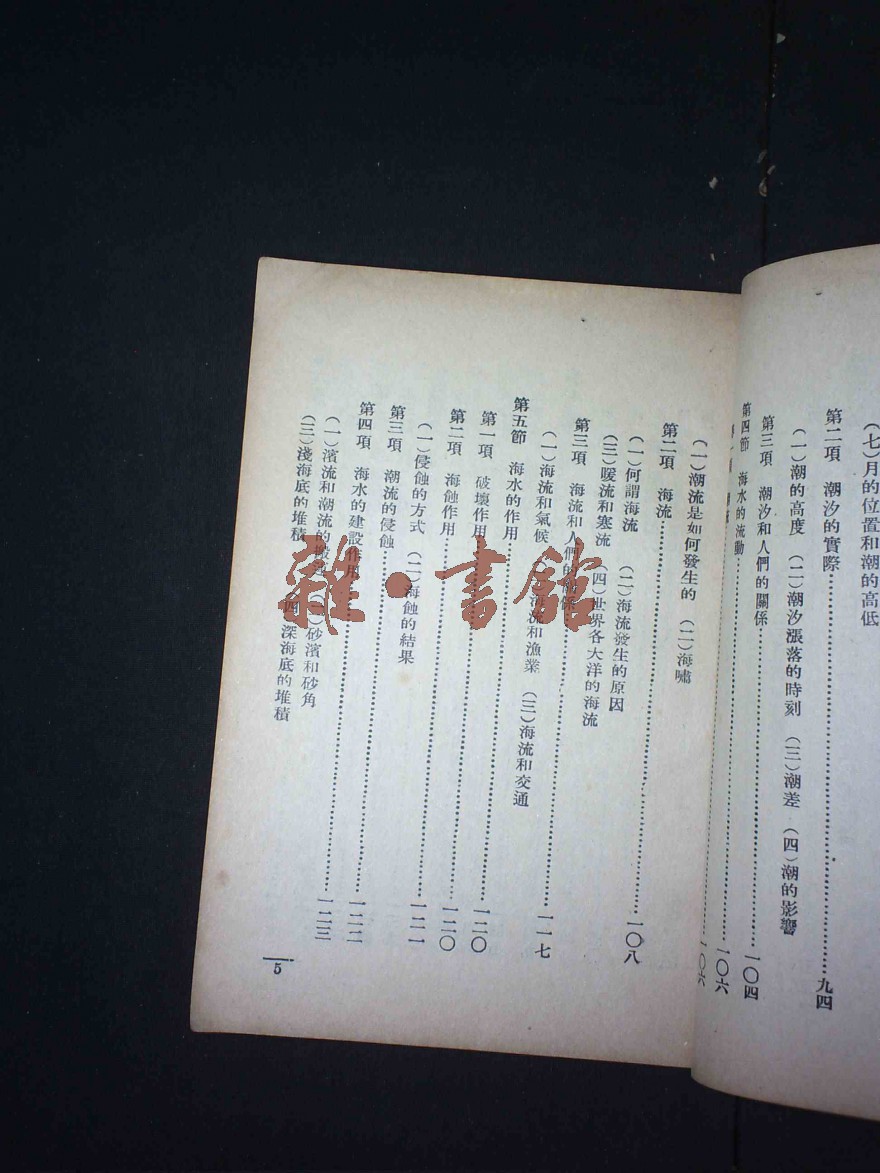 （七）月的位置和潮的高低
第二項　潮汐的實際……………………九四
（一）潮的高度　（二）潮汐漲落的時刻　（三）潮差　（四）潮的影響
第三項　潮汐和人們的關係……………………一〇四
第四節　海水的流動……………………一〇六
……………………一〇六
（一）潮流是如何發生的　（二）海嘯
第二項　海流……………………一〇八
（一）何謂海流　（二）海流發生的原因
（三）暖流和寒流　（四）世界各大洋的海流
第三項　海流和人們的關係……………………一一七
（一）海流和氣候　（二）海流和漁業　（三）海流和交通
第五節　海水的作用……………………一二〇
第一項　破壞作用……………………一二〇
第二項　海蝕作用……………………一二一
（一）侵蝕的方式　（二）海蝕的結果
第三項　潮流的侵蝕……………………一二二
第四項　海水的建設作用……………………一二三
（一）濱流和潮流的搬運　（二）砂濱和砂角
（三）淺海底的堆積　（四）深海底的堆積
5
雜·書館